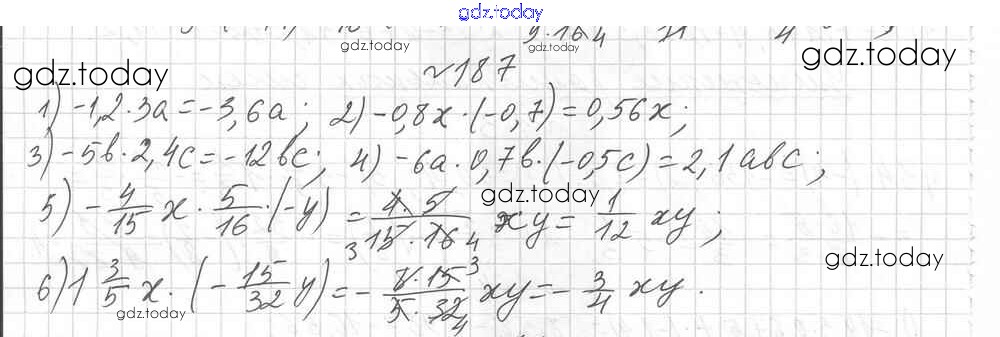 gdz.today
gdz.today
gdz.today gdz.today
№187
1) -1,2·3a=-3,6a; 2) -0,8x·(-0,7)=0,56x;
3) -5b·2,4c=-12bc; 4) -6a·0,7b·(-0,5c)=2,1abc;
gdz.today
5) -4/15 x·5/16·(-y)=4·5/15·16 xy=1/12 xy;
3 4
gdz.today
6) 1 3/5 x·(-15/32 y)=-8·15/5·32 xy=-3/4 xy.
3 4
gdz.today